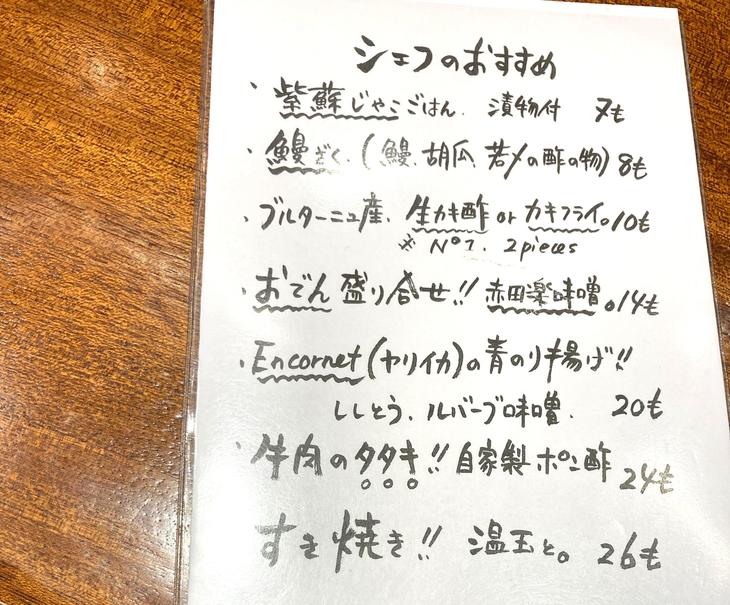 シェフのおすすめ
・紫蘇じゃこごはん. 漬物付 7€
・鰻ざく. (鰻.胡瓜.若メの酢の物) 8€
・ブルターニュ産. 生カキ酢 or カキフライ。10€
※ N°1. 2pieces
・おでん盛り合せ!! 赤田楽味噌。14€
・Encornet (ヤリイカ)の青のり揚げ!!
ししとう.ルバーブ味噌. 20€
・牛肉のタタキ!! 自家製ポン酢 24€
すき焼き!! 温玉と。 26€